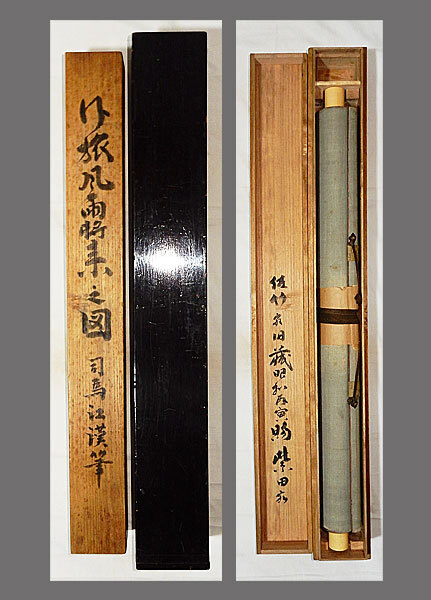 行旅風雨将来之図 司馬江漢筆
佐竹家旧蔵昭和庚寅賜柴田家